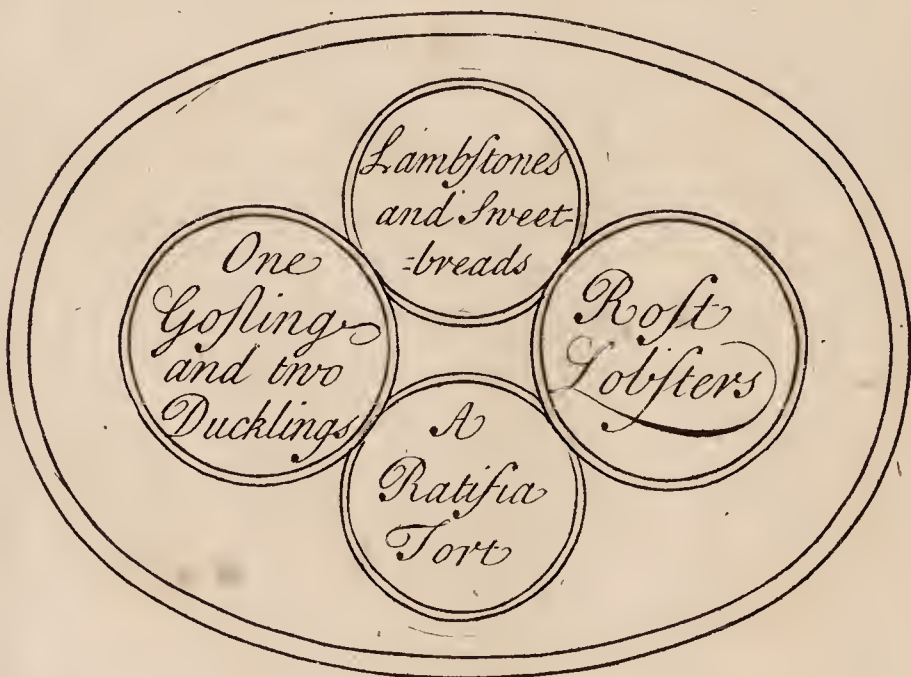 Lambſtones
and Sweet-
=breads
One
Goſling
and two
Ducklings
Roſt
Lobſters
A
Ratifia
Tort